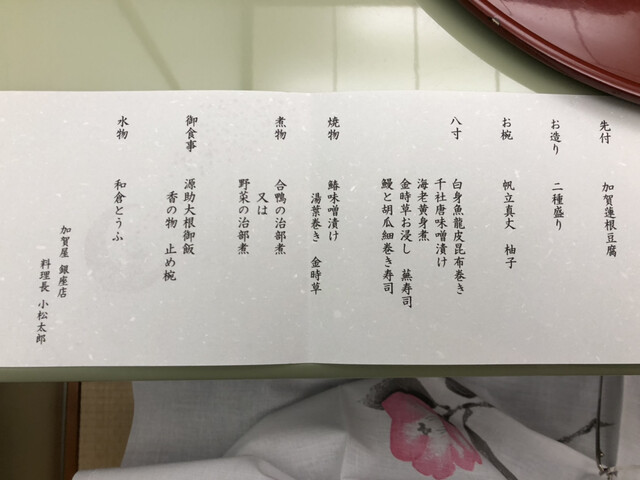 先付　加賀蓮根豆腐
お造り　二種盛り
お椀　帆立真丈　柚子
八寸　白身魚龍皮昆布巻き
千社唐味噌漬け
海老黄身煮
金時草お浸し　蕪寿司
鰻と胡瓜細巻き寿司
焼物　鰆味噌漬け
湯葉巻き　金時草
煮物　合鴨の治部煮
又は
野菜の治部煮
御食事　源助大根御飯
香の物　止め椀
水物　和倉とうふ
加賀屋　銀座店
料理長　小松太郎